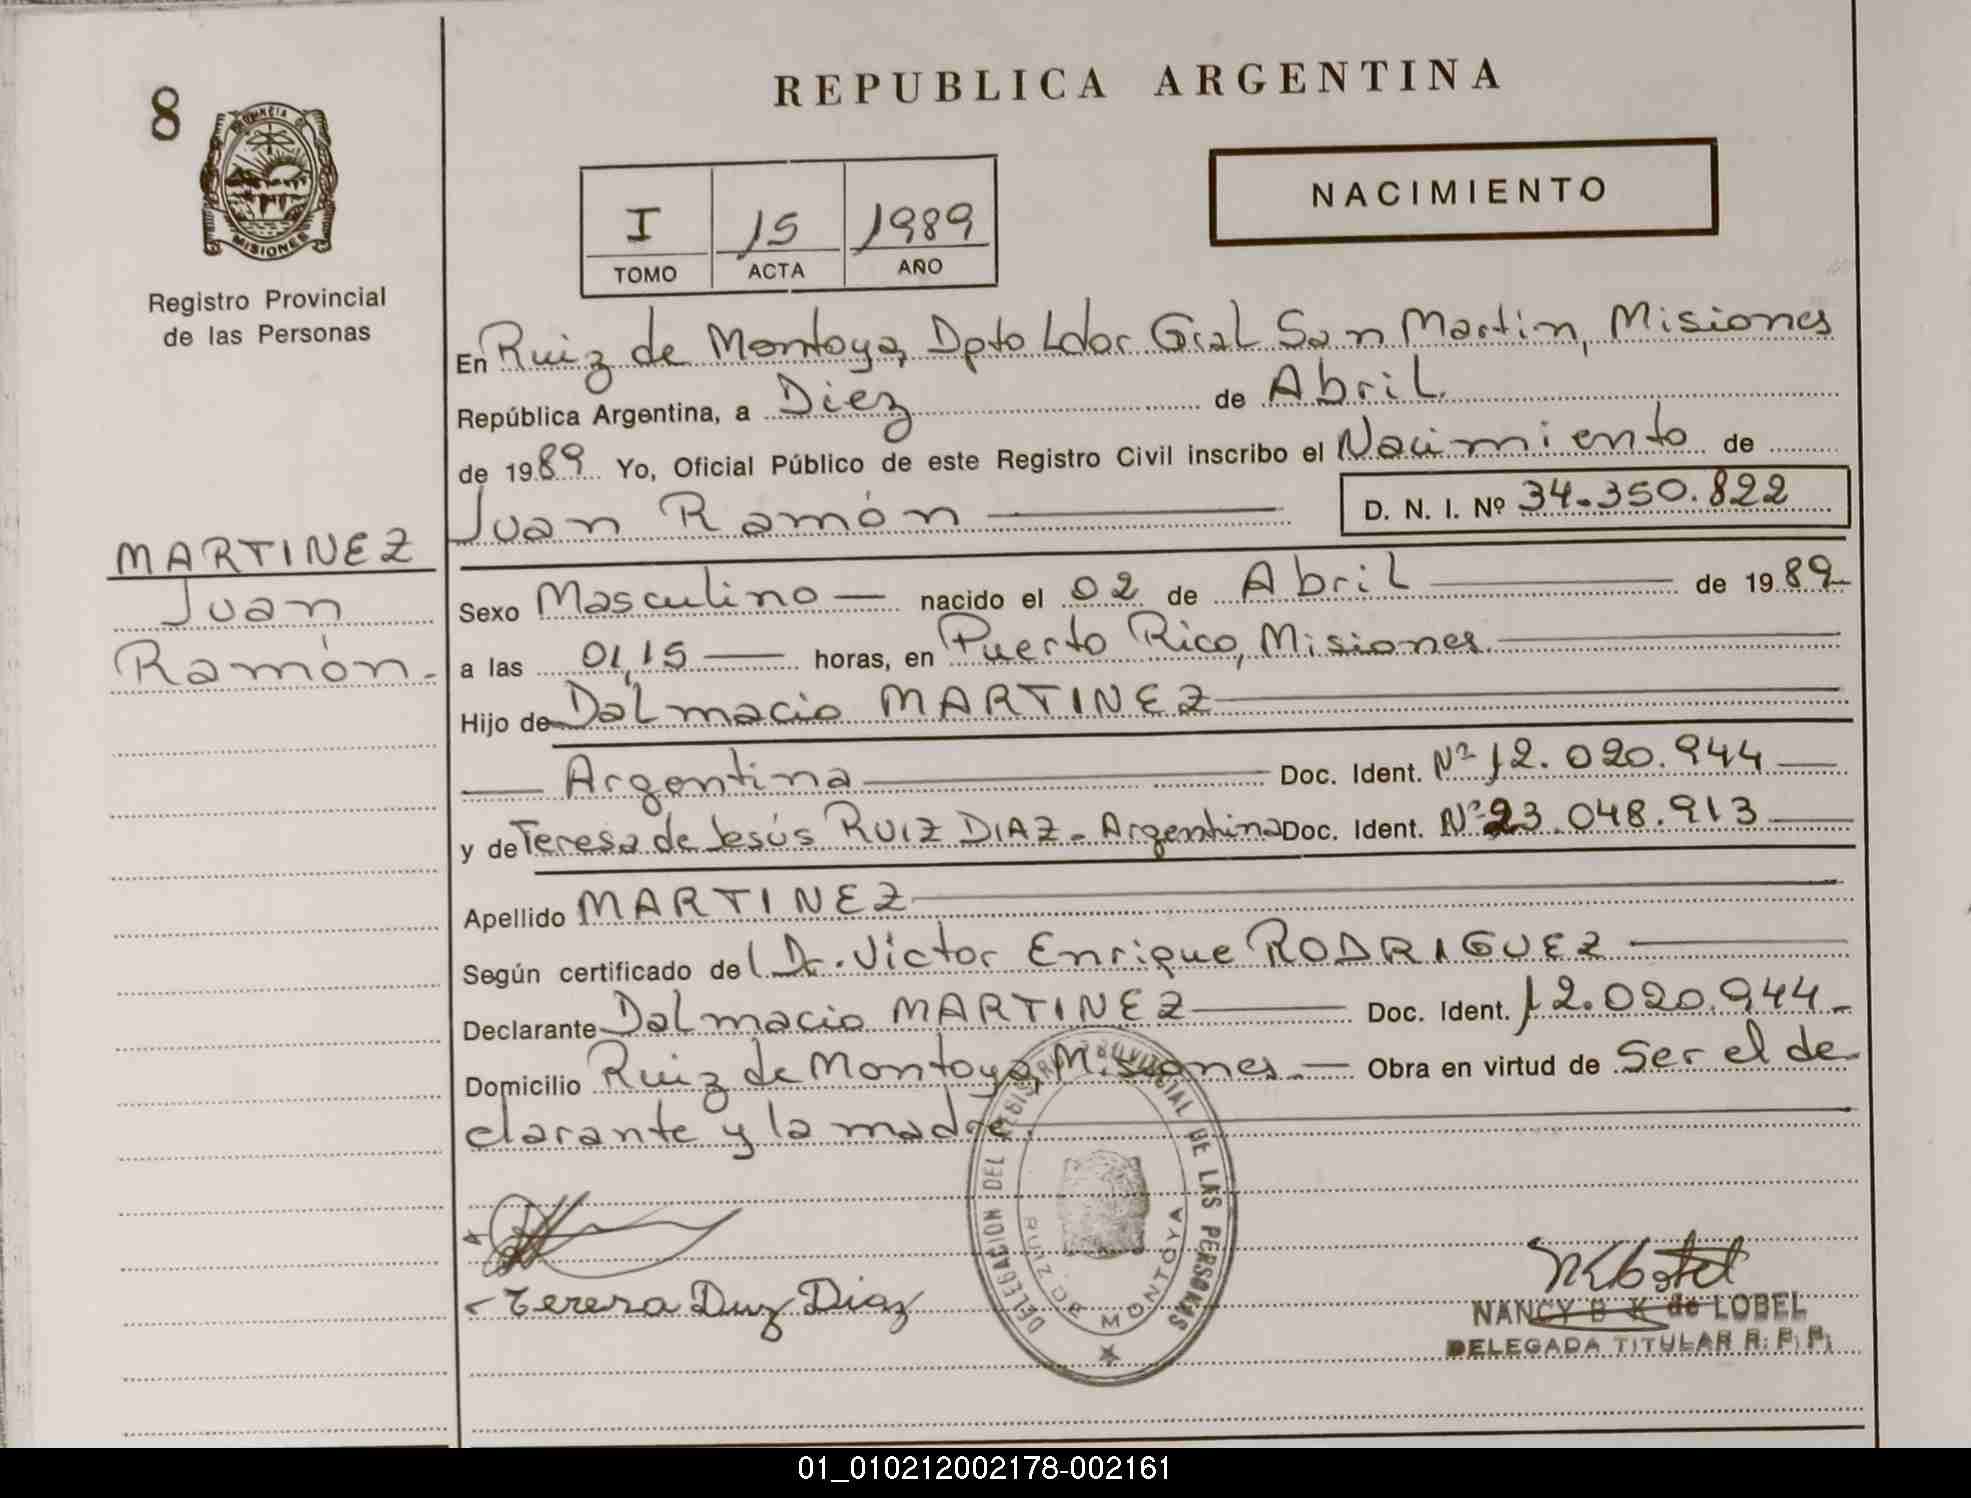 REPUBLICA ARGENTINA
8
PROVINCIA DE
MISIONES
Registro Provincial
de las Personas
NACIMIENTO
I 15 1989
TOMO ACTA AÑO
En Ruiz de Montoya, Dpto Ldor Gral San Martin, Misiones
República Argentina, a Diez de Abril
de 1989 Yo, Oficial Público de este Registro Civil inscribo el Nacimiento de
Juan Ramón D. N. I. Nº 34.350.822
MARTINEZ
Juan
Ramón.
Sexo Masculino nacido el 02 de Abril de 1989
a las 01,15 horas, en Puerto Rico, Misiones
Hijo de Dalmacio MARTINEZ
Argentina Doc. Ident. Nº 12.020.944
y de Teresa de Jesús RUIZ DIAZ - Argentina Doc. Ident. Nº 23.048.913
Apellido MARTINEZ
Según certificado del Dr. Victor Enrique RODRIGUEZ
Declarante Dalmacio MARTINEZ Doc. Ident. 12.020.944
Domicilio Ruiz de Montoya, Misiones Obra en virtud de Ser el de
clarante y la madre.
DELEGACION DEL REGISTRO PROVINCIAL DE LAS PERSONAS
RUIZ DE MONTOYA
Teresa Diaz
NANCY B K de LOBEL
DELEGADA TITULAR R. P. P.
01_010212002178-002161